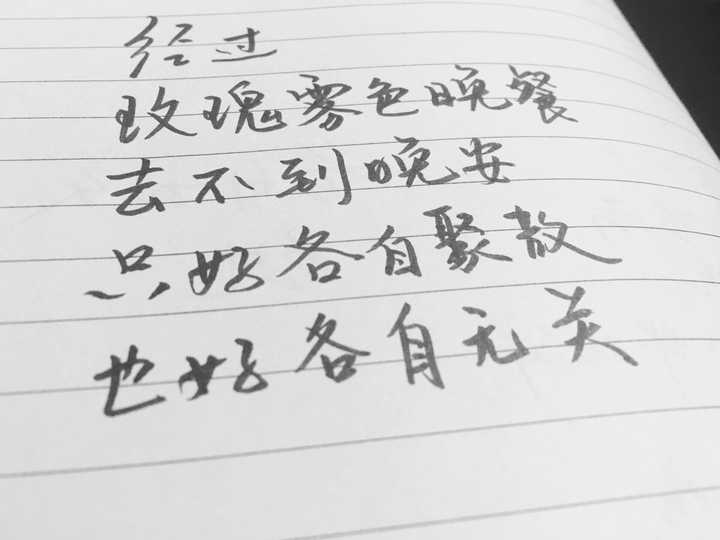 经过
玫瑰雾色晚餐
去不到晚安
只好各自聚散
也好各自无关